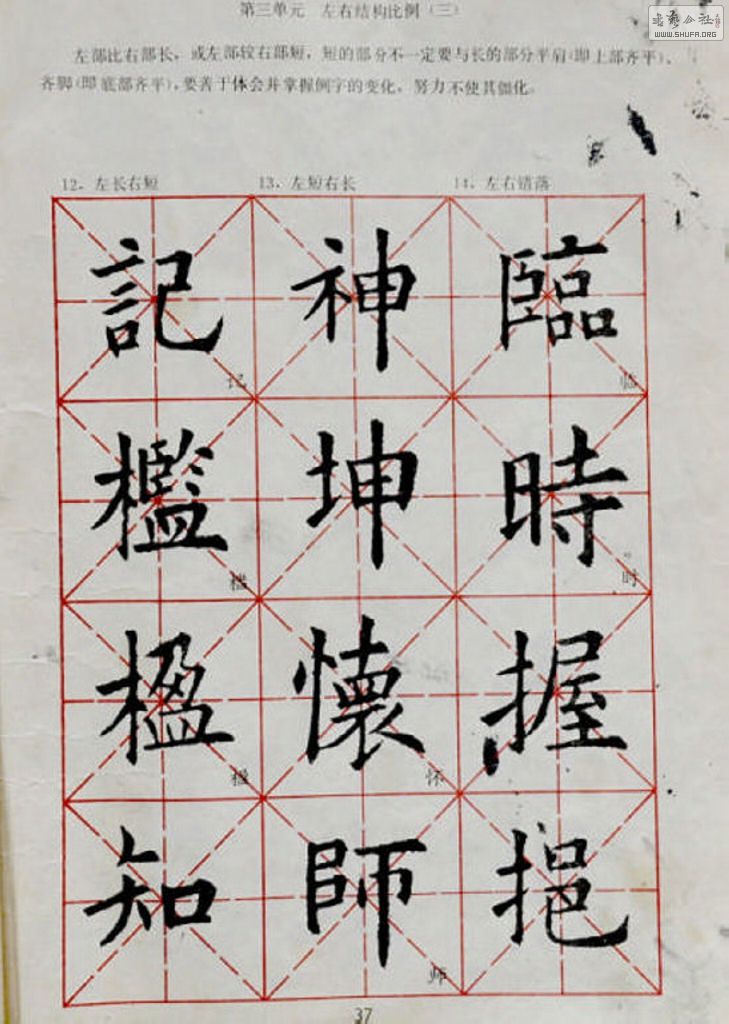 書藝公社
WWW.SHUFA.ORG
第三单元 左右结构比例（三）
左部比右部长，或左部较右部短，短的部分不一定要与长的部分平肩（即上部齐平）、
齐脚（即底部齐平），要善于体会并掌握例字的变化，努力不使其僵化。
12．左长右短 13．左短右长 14．左右错落
記 神 臨
记 临
檻 坤 時
槛 时
楹 懷 握
楹 怀
知 師 挹
师
37